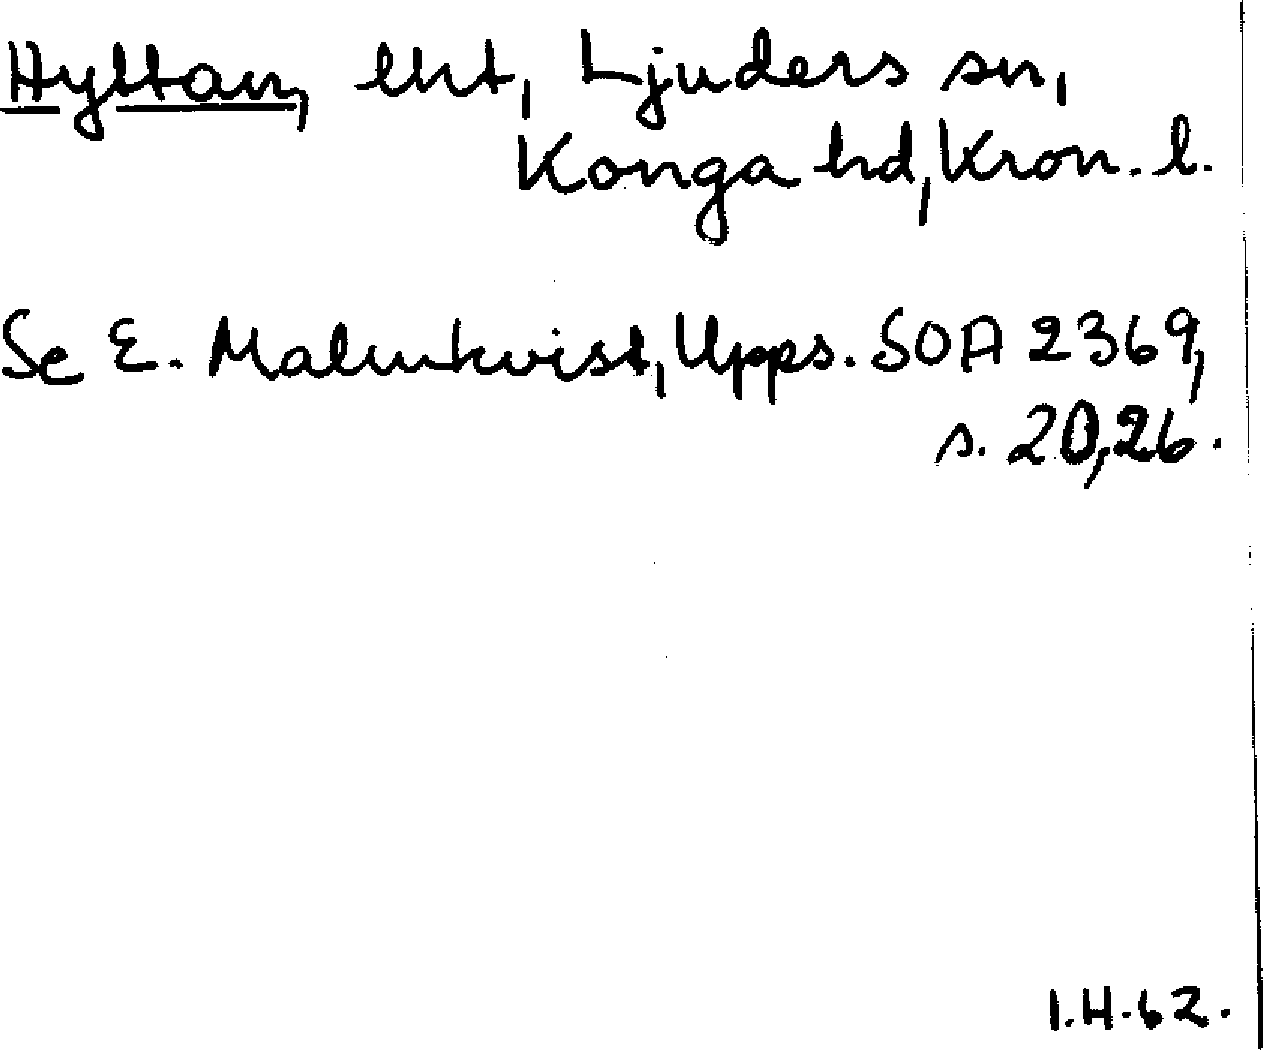 Hyltan, lht, Ljuders sn,
Konga hd, Kron. l.
Se E. Malmkvist, Upps. SOA 2369,
s. 20, 26.
I.H.62.